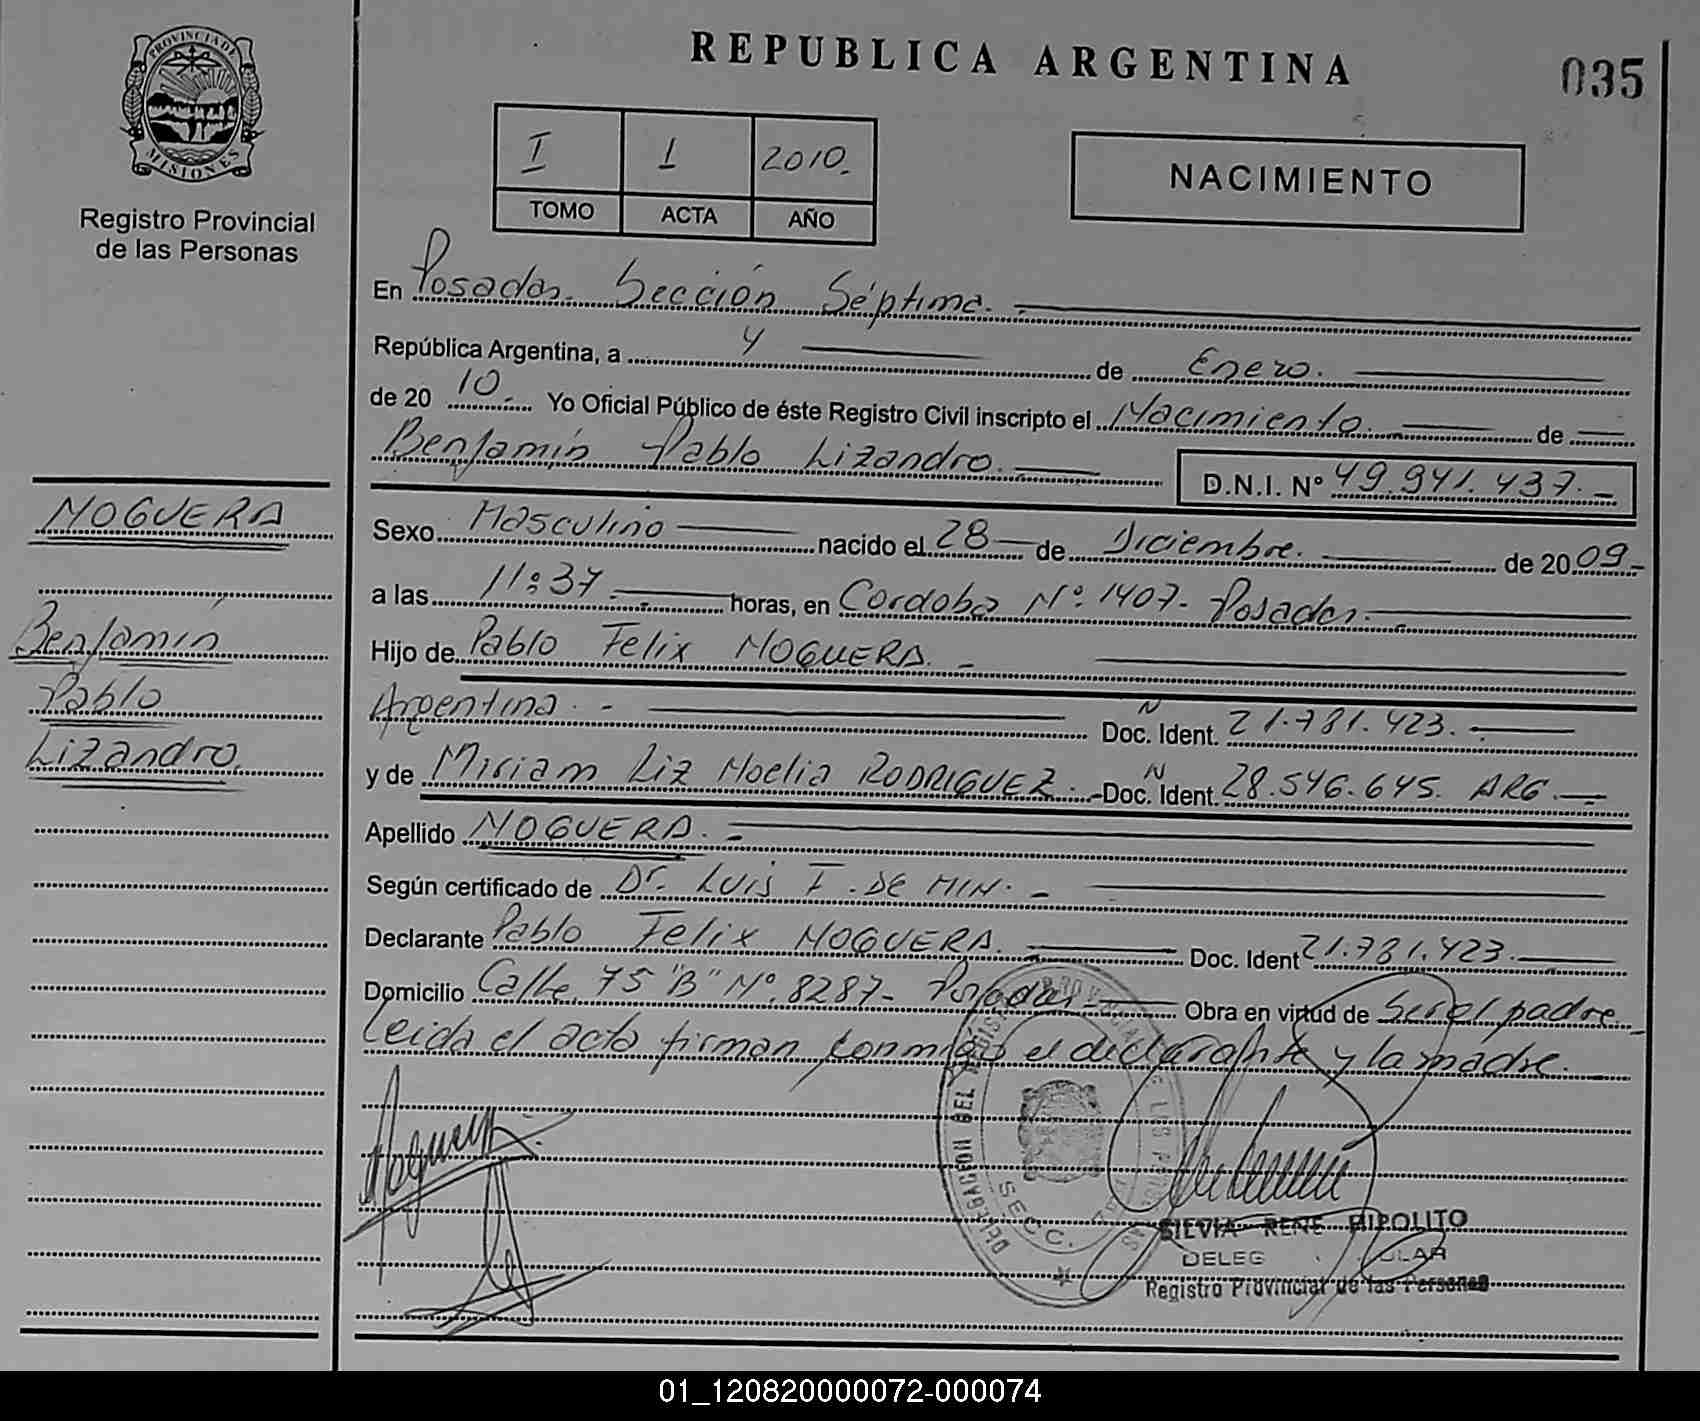 PROVINCIA DE
MISIONES
Registro Provincial
de las Personas
NOGUERA
Benjamín
Pablo
Lizandro.
REPUBLICA ARGENTINA
035
I 1 2010.
TOMO ACTA AÑO
NACIMIENTO
En Posadas. Sección Séptima.
República Argentina, a 4 de Enero.
de 20 10. Yo Oficial Público de éste Registro Civil inscripto el Nacimiento. de
Benjamín Pablo Lizandro. D.N.I. Nº 49.941.437.-
Sexo Masculino nacido el 28 de Diciembre. de 20 09.-
a las 11:37 horas, en Cordoba Nº. 1407- Posadas.
Hijo de Pablo Felix NOGUERA. -
Argentina. - N Doc. Ident. 21.781.423.
y de Miriam Liz Noelia RODRIGUEZ.- N Doc. Ident. 28.546.645. ARG.
Apellido NOGUERA. -
Según certificado de Dr. LUIS F. DE MIN. -
Declarante Pablo Felix NOGUERA. Doc. Ident 21.781.423.
Domicilio Calle 75 "B" Nº. 8287- Posadas Obra en virtud de Ser el padre.-
Leida el acta firman conmigo el declarante y la madre.
Noguera
DELEGACION DEL REGISTRO PROVINCIAL DE LAS PERSONAS
SECC.
SILVIA RENE HIPOLITO
Registro Provincial de las Personas
01_120820000072-000074